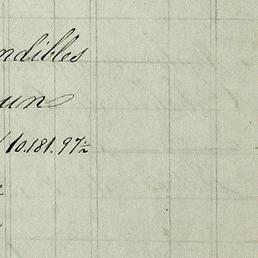 ndibles
un
10.181.97½